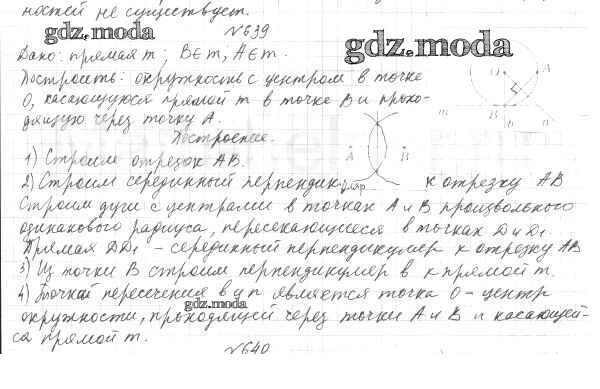 ностей не существует.
№639
gdz.moda
gdz.moda
Дано: прямая m; B∈m, A∉m.
Построить: окружность с центром в точке
O, касающуюся прямой m в точке B и прохо-
дящую через точку A.
Построение.
1) Строим отрезок AB.
2) Строим серединный перпендикуляр к отрезку AB
Строим дуги с центрами в точках A и B произвольного
одинакового радиуса, пересекающиеся в точках D и D₁.
Прямая DD₁ - серединный перпендикуляр к отрезку AB
3) Из точки B строим перпендикуляр b к прямой m.
4) Точкой пересечения b и p является точка O - центр
gdz.moda
окружности, проходящей через точки A и B и касающей-
ся прямой m.
№640
O
A
m
B
A
B